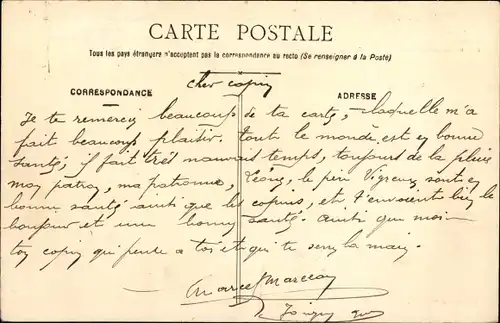 CARTE POSTALE
Tous les pays étrangers n'acceptent pas la correspondance au recto (Se renseigner à la Poste)
CORRESPONDANCE
ADRESSE
cher copin
Je te remercie beaucoup de ta carte, laquelle m'a
fait beaucoup plaisir. tout le monde est en bonne
santé, il fait très mauvais temps, toujours de la pluie
mon patron, ma patronne, Léon, le père sont en
bonne santé ainsi que les copins, et t'envoient bien le
bonjour et une bonne santé. ainsi que moi
ton copin qui pense a toi et qui te serre la main.
Marcel